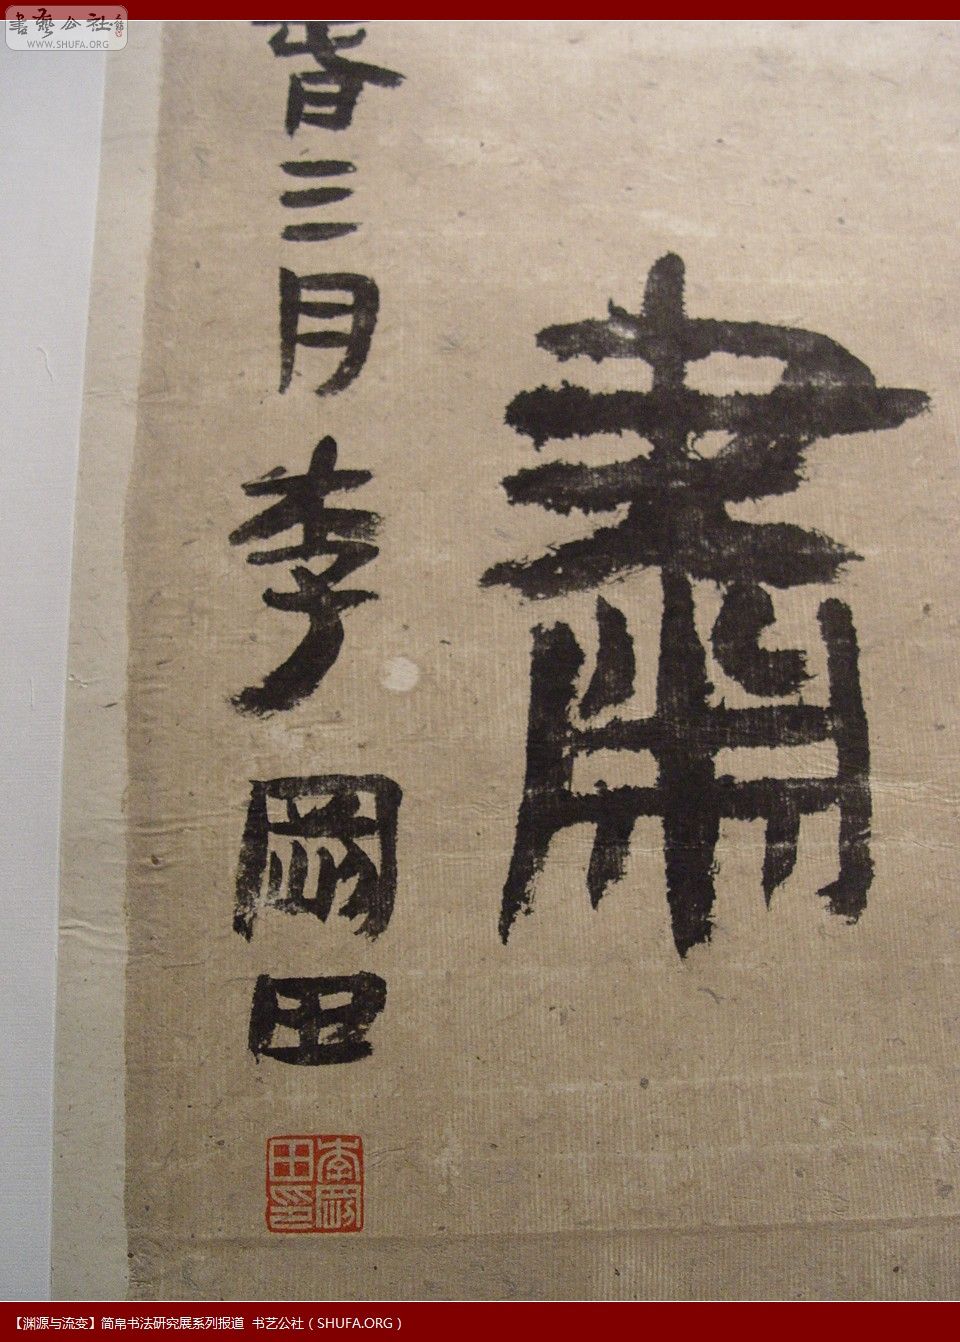 書藝公社
WWW.SHUFA.ORG
肅
春三月李岡田
李岡田印
【渊源与流变】简帛书法研究展系列报道 书艺公社（SHUFA.ORG）